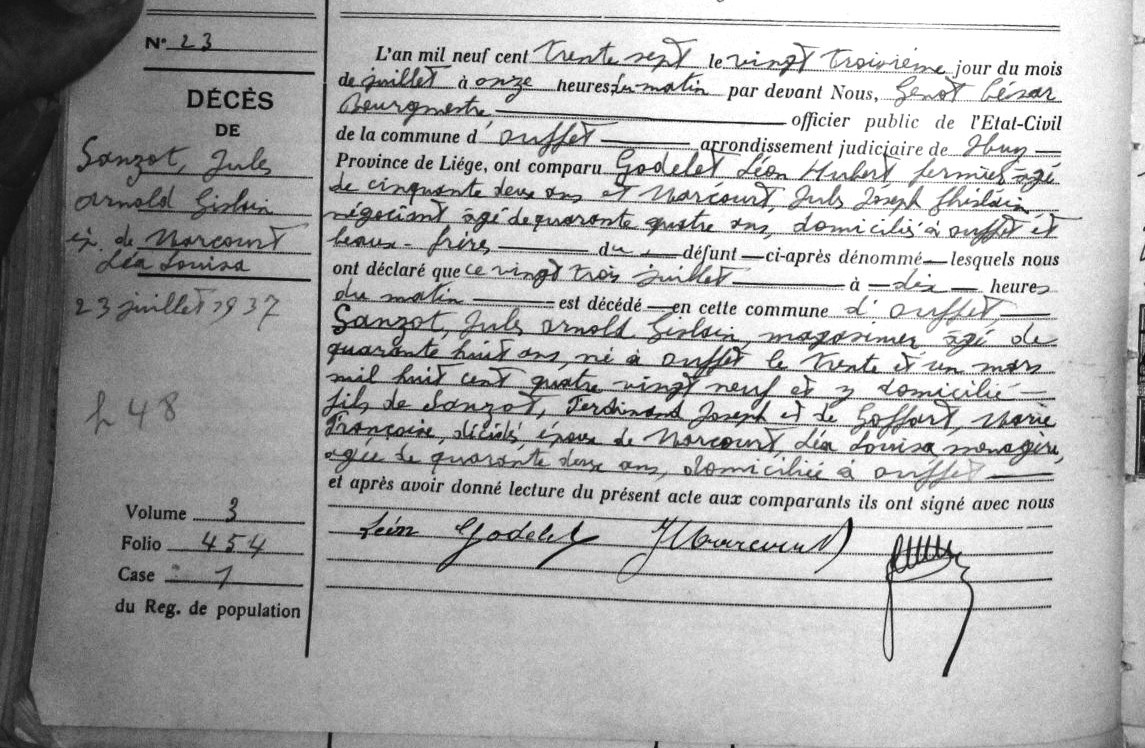 N° 23
DÉCÈS
DE
Sanzot, Jules
Arnold Gislain
ép. de Marcourt
Léa Louisa
23 juillet 1937
h 48
Volume 3
Folio 454
Case 1
du Reg. de population
L'an mil neuf cent trente sept le vingt troisième jour du mois
de juillet à onze heures du matin par devant Nous, Genot César
Bourgmestre, officier public de l'Etat-Civil
de la commune d'ouffet arrondissement judiciaire de Huy
Province de Liége, ont comparu Godelet Léon Hubert fermier âgé
de cinquante deux ans et Marcourt, Jules Joseph Ghislain
négociant âgé de quarante quatre ans, domiciliés à ouffet et
beaux-frères du défunt ci-après dénommé lesquels nous
ont déclaré que ce vingt trois juillet à dix heures
du matin est décédé en cette commune d'ouffet,
Sanzot, Jules Arnold Gislain, magasinier âgé de
quarante huit ans, né à ouffet le trente et un mars
mil huit cent quatre vingt neuf et y domicilié
fils de Sanzot, Ferdinand Joseph et de Goffart, Marie
Françoise, décédés époux de Marcourt, Léa Louisa menagère,
agée de quarante deux ans, domiciliée à ouffet
et après avoir donné lecture du présent acte aux comparants ils ont signé avec nous
Léon Godelet JMarcourt